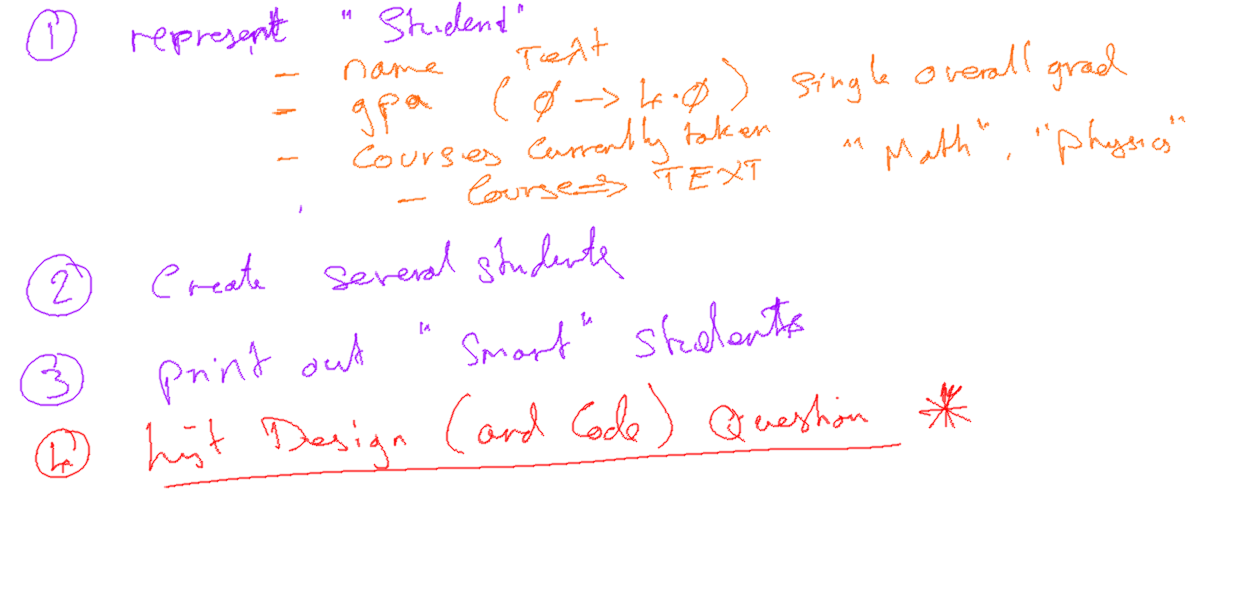 ① represent "Student"
- name Text
- gpa (0 -> 4.0) single overall grad
- courses currently taken "Math", "physics"
- Course => TEXT
② Create several students
③ print out "Smart" students
④ List Design (and Code) Question *